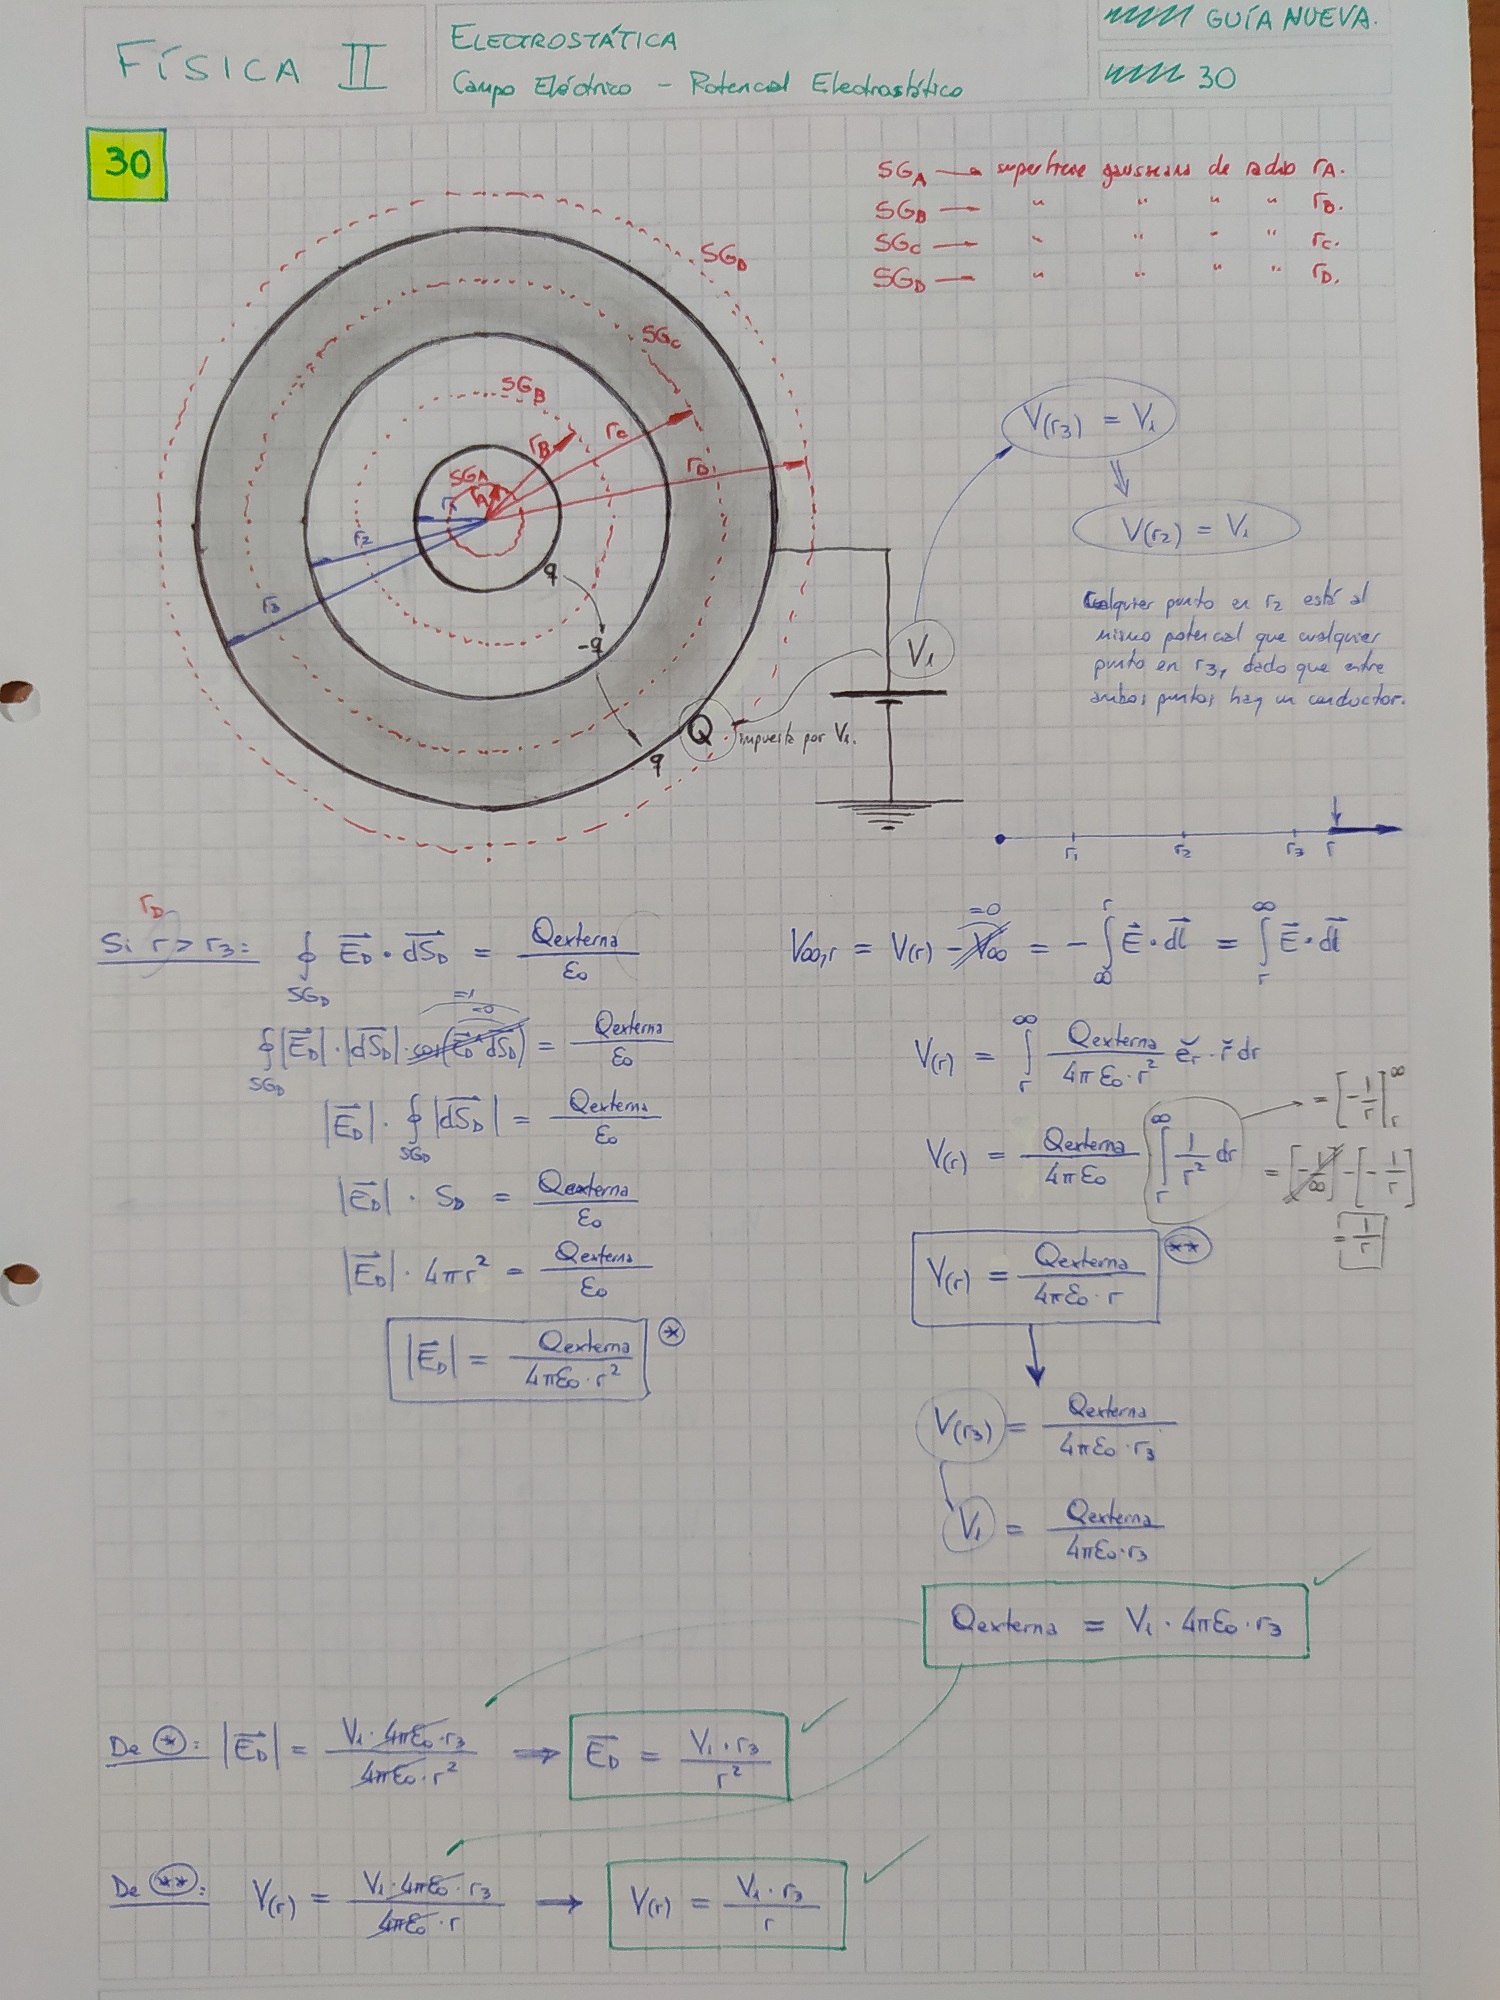 FÍSICA II
ELECTROSTÁTICA
Campo Eléctrico - Potencial Electrostático
GUÍA NUEVA.
30
30
SG_A → superficie gaussiana de radio r_A.
SG_B → " " " " r_B.
SG_C → " " " " r_C.
SG_D → " " " " r_D.
SG_D
SG_C
SG_B
r_B
r_C
r_D
SG_A
r_A
r_1
r_2
r_3
q
-q
q
Q impuesta por V₁.
V₁
V(r₃) = V₁
⇓
V(r₂) = V₁
Cualquier punto en r₂ está al
mismo potencial que cualquier
punto en r₃, dado que entre
ambos puntos hay un conductor.
r₁ r₂ r₃ r
r_D
Si r > r₃:
∮_SG_D E_D⃗ · dS_D⃗ = Qexterna / ε₀
=1
=0
∮_SG_D |E_D⃗| · |dS_D⃗| · cos(E_D⃗^dS_D⃗) = Qexterna / ε₀
|E_D⃗| · ∮_SG_D |dS_D⃗| = Qexterna / ε₀
|E_D⃗| · S_D = Qexterna / ε₀
|E_D⃗| · 4πr² = Qexterna / ε₀
|E_D⃗| = Qexterna / 4πε₀ · r² (*)
=0
V∞,r = V(r) - V∞ = - ∫_∞^r E⃗ · dl⃗ = ∫_r^∞ E⃗ · dl⃗
V(r) = ∫_r^∞ Qexterna / 4πε₀ · r² ĕr · r̆ dr
V(r) = Qexterna / 4πε₀ ∫_r^∞ 1/r² dr
= [-1/r]_r^∞
= [-1/∞] - [-1/r]
= 1/r
V(r) = Qexterna / 4πε₀ · r (**)
V(r₃) = Qexterna / 4πε₀ · r₃
V₁ = Qexterna / 4πε₀ · r₃
Qexterna = V₁ · 4πε₀ · r₃
De (*): |E_D⃗| = V₁ · 4πε₀ · r₃ / 4πε₀ · r² ⇒ E_D = V₁ · r₃ / r²
De (**): V(r) = V₁ · 4πε₀ · r₃ / 4πε₀ · r → V(r) = V₁ · r₃ / r